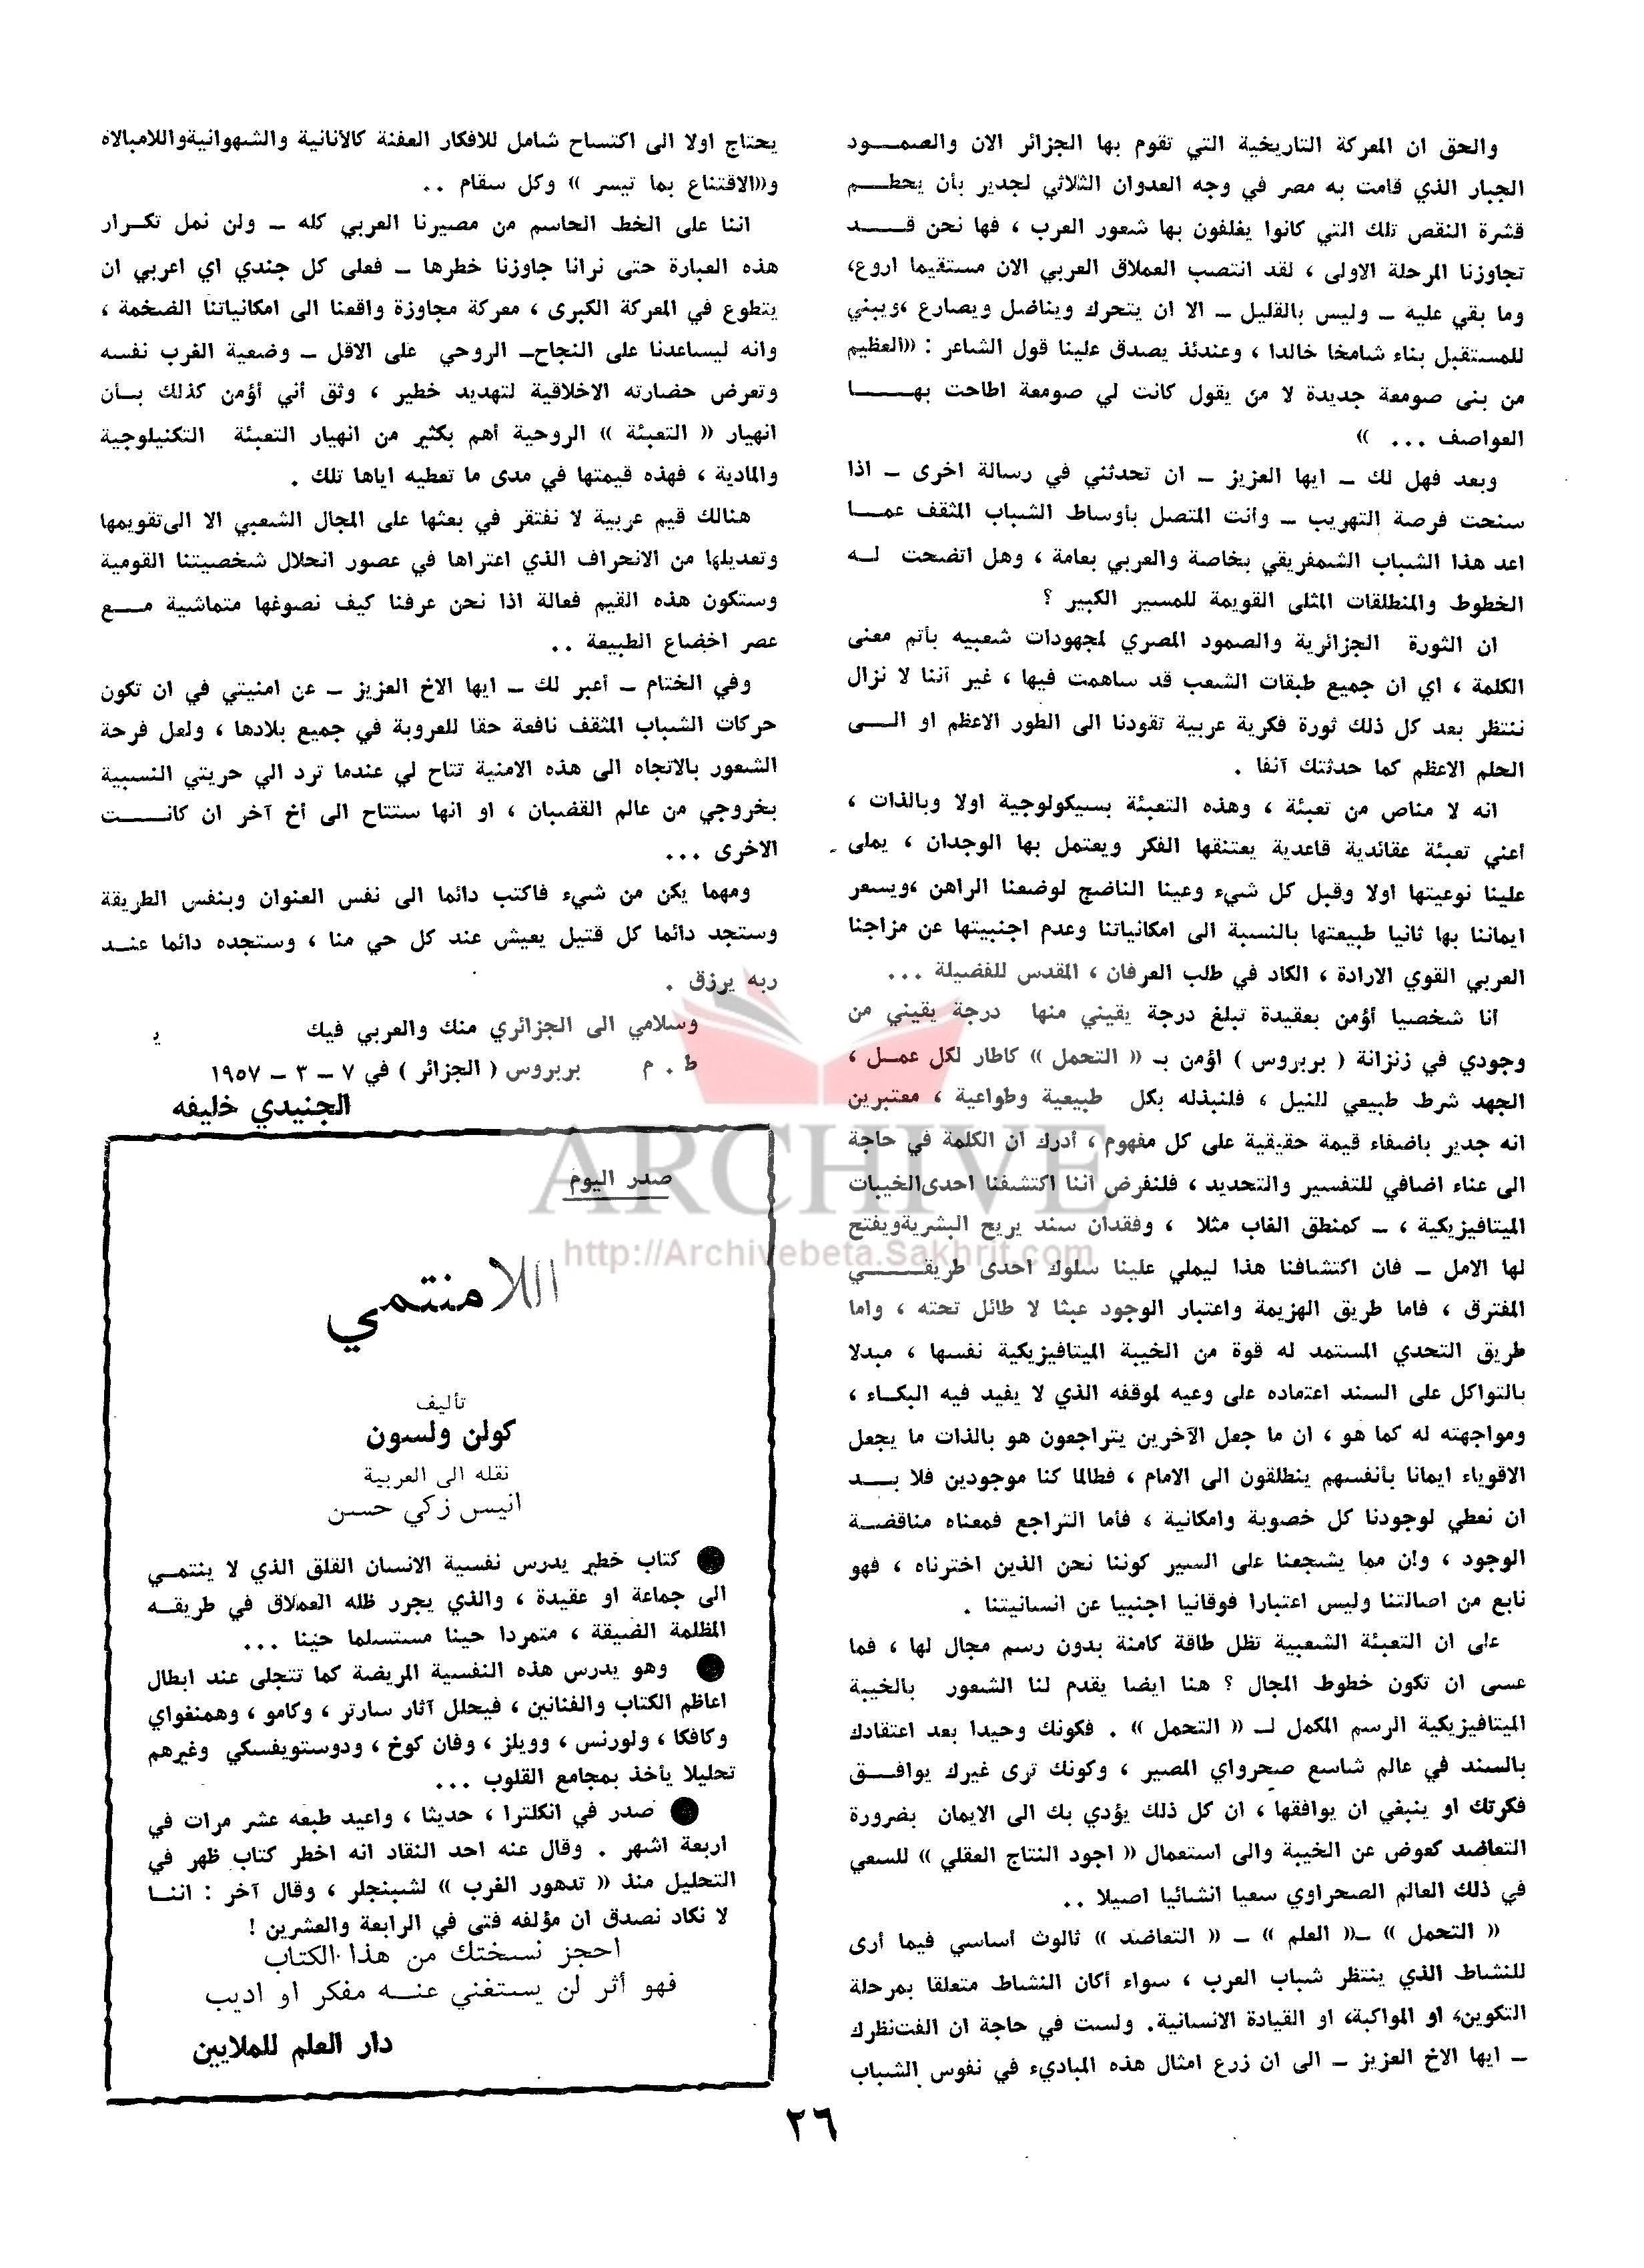 والحق ان المعركة التاريخية التي تقوم بها الجزائر الان والصمود
الجبار الذي قامت به مصر في وجه العدوان الثلاثي لجدير بأن يحطم
قشرة النقص تلك التي كانوا يغلفون بها شعور العرب ، فها نحن قد
تجاوزنا المرحلة الاولى ، لقد انتصب العملاق العربي الان مستقيما اروع،
وما بقي عليه ـ وليس بالقليل ـ الا ان يتحرك ويناضل ويصارع ،ويبني
للمستقبل بناء شامخا خالدا ، وعندئذ يصدق علينا قول الشاعر : «العظيم
من بنى صومعة جديدة لا من يقول كانت لي صومعة اطاحت بها
العواصف ... »
وبعد فهل لك ـ ايها العزيز ـ ان تحدثني في رسالة اخرى ـ اذا
سنحت فرصة التهريب ـ وأنت المتصل بأوساط الشباب المثقف عما
اعد هذا الشباب الشمفريقي بخاصة والعربي بعامة ، وهل اتضحت له
الخطوط والمنطلقات المثلى القويمة للمسير الكبير ؟
ان الثورة الجزائرية والصمود المصري لمجهودات شعبيه بأتم معنى
الكلمة ، اي ان جميع طبقات الشعب قد ساهمت فيها ، غير أننا لا نزال
ننتظر بعد كل ذلك ثورة فكرية عربية تقودنا الى الطور الاعظم او الى
الحلم الاعظم كما حدثتك آنفا .
انه لا مناص من تعبئة ، وهذه التعبئة بسيكولوجية اولا وبالذات ،
أعني تعبئة عقائدية قاعدية يعتنقها الفكر ويعتمل بها الوجدان ، يملى
علينا نوعيتها اولا وقبل كل شيء وعينا الناضج لوضعنا الراهن ،ويسعر
ايماننا بها ثانيا طبيعتها بالنسبة الى امكانياتنا وعدم اجنبيتها عن مزاجنا
العربي القوي الارادة ، الكاد في طلب العرفان ، المقدس للفضيلة ...
أنا شخصيا أؤمن بعقيدة تبلغ درجة يقيني منها درجة يقيني من
وجودي في زنزانة ( بربروس ) اؤمن بـ « التحمل » كاطار لكل عمل ،
الجهد شرط طبيعي للنيل ، فلنبذله بكل طبيعية وطواعية ، معتبرين
انه جدير باضفاء قيمة حقيقية على كل مفهوم ، أدرك ان الكلمة في حاجة
الى عناء اضافي للتفسير والتحديد ، فلنفرض أننا اكتشفنا احدىالخيبات
الميتافيزيكية ، ـ كمنطق الغاب مثلا ، وفقدان سند يريح البشريةويفتح
لها الامل ـ فان اكتشافنا هذا ليملي علينا سلوك احدى طريقي
المفترق ، فاما طريق الهزيمة واعتبار الوجود عبثا لا طائل تحته ، واما
طريق التحدي المستمد له قوة من الخيبة الميتافيزيكية نفسها ، مبدلا
بالتواكل على السند اعتماده على وعيه لموقفه الذي لا يفيد فيه البكاء ،
ومواجهته له كما هو ، ان ما جعل الآخرين يتراجعون هو بالذات ما يجعل
الاقوياء ايمانا بأنفسهم ينطلقون الى الامام ، فطالما كنا موجودين فلا بد
ان نعطي لوجودنا كل خصوبة وامكانية ، فأما التراجع فمعناه مناقضة
الوجود ، وان مما يشجعنا على السير كوننا نحن الذين اخترناه ، فهو
نابع من اصالتنا وليس اعتبارا فوقانيا اجنبيا عن انسانيتنا .
على ان التعبئة الشعبية تظل طاقة كامنة بدون رسم مجال لها ، فما
عسى ان تكون خطوط المجال ؟ هنا ايضا يقدم لنا الشعور بالخيبة
الميتافيزيكية الرسم المكمل لـ « التحمل » . فكونك وحيدا بعد اعتقادك
بالسند في عالم شاسع صحرواي المصير ، وكونك ترى غيرك يوافق
فكرتك او ينبغي ان يوافقها ، ان كل ذلك يؤدي بك الى الايمان بضرورة
التعاضد كعوض عن الخيبة والى استعمال « اجود النتاج العقلي » للسعي
في ذلك العالم الصحراوي سعيا انشائيا اصيلا ..
« التحمل » ـ« العلم » ـ « التعاضد » ثالوث أساسي فيما أرى
للنشاط الذي ينتظر شباب العرب ، سواء أكان النشاط متعلقا بمرحلة
التكوين، او المواكبة، او القيادة الانسانية. ولست في حاجة ان الفتنظرك
ـ ايها الاخ العزيز ـ الى ان زرع امثال هذه المباديء في نفوس الشباب
يحتاج اولا الى اكتساح شامل للافكار العفنة كالانانية والشهوانيةواللامبالاه
و«الاقتناع بما تيسر » وكل سقام ..
اننا على الخط الحاسم من مصيرنا العربي كله ـ ولن نمل تكرار
هذه العبارة حتى نرانا جاوزنا خطرها ـ فعلى كل جندي اي اعربي ان
يتطوع في المعركة الكبرى ، معركة مجاوزة واقعنا الى امكانياتنا الضخمة ،
وانه ليساعدنا على النجاح ـ الروحي على الاقل ـ وضعية الغرب نفسه
وتعرض حضارته الاخلاقية لتهديد خطير ، وثق أني أؤمن كذلك بأن
انهيار « التعبئة » الروحية أهم بكثير من انهيار التعبئة التكنيلوجية
والمادية ، فهذه قيمتها في مدى ما تعطيه اياها تلك .
هنالك قيم عربية لا نفتقر في بعثها على المجال الشعبي الا الىتقويمها
وتعديلها من الانحراف الذي اعتراها في عصور انحلال شخصيتنا القومية
وستكون هذه القيم فعالة اذا نحن عرفنا كيف نصوغها متماشية مع
عصر اخضاع الطبيعة ..
وفي الختام ـ أعبر لك ـ ايها الاخ العزيز ـ عن امنيتي في ان تكون
حركات الشباب المثقف نافعة حقا للعروبة في جميع بلادها ، ولعل فرحة
الشعور بالاتجاه الى هذه الامنية تتاح لي عندما ترد الي حريتي النسبية
بخروجي من عالم القضبان ، او انها ستتاح الى أخ آخر ان كانت
الاخرى ...
ومهما يكن من شيء فاكتب دائما الى نفس العنوان وبنفس الطريقة
وستجد دائما كل قتيل يعيش عند كل حي منا ، وستجده دائما عند
ربه يرزق .
وسلامي الى الجزائري منك والعربي فيك
ط . م بربروس ( الجزائر ) في ٧ ـ ٣ ـ ١٩٥٧
الجنيدي خليفه
صدر اليوم
اللامنتمي
تأليف
كولن ولسون
نقله الى العربية
انيس زكي حسن
● كتاب خطير يدرس نفسية الانسان القلق الذي لا ينتمي
الى جماعة او عقيدة ، والذي يجرر ظله العملاق في طريقه
المظلمة الضيقة ، متمردا حينا مستسلما حينا ...
● وهو يدرس هذه النفسية المريضة كما تتجلى عند ابطال
اعاظم الكتاب والفنانين ، فيحلل آثار سارتر ، وكامو ، وهمنغواي
وكافكا ، ولورنس ، وويلز ، وفان كوخ ، ودوستويفسكي وغيرهم
تحليلا يأخذ بمجامع القلوب ...
● صدر في انكلترا ، حديثا ، واعيد طبعه عشر مرات في
اربعة اشهر . وقال عنه احد النقاد انه اخطر كتاب ظهر في
التحليل منذ « تدهور الغرب » لشبنجلر ، وقال آخر : اننا
لا نكاد نصدق ان مؤلفه فتى في الرابعة والعشرين !
احجز نسختك من هذا الكتاب
فهو أثر لن يستغني عنه مفكر او اديب
دار العلم للملايين
ARCHIVE
http://Archivebeta.Sakhrit.com
٢٦